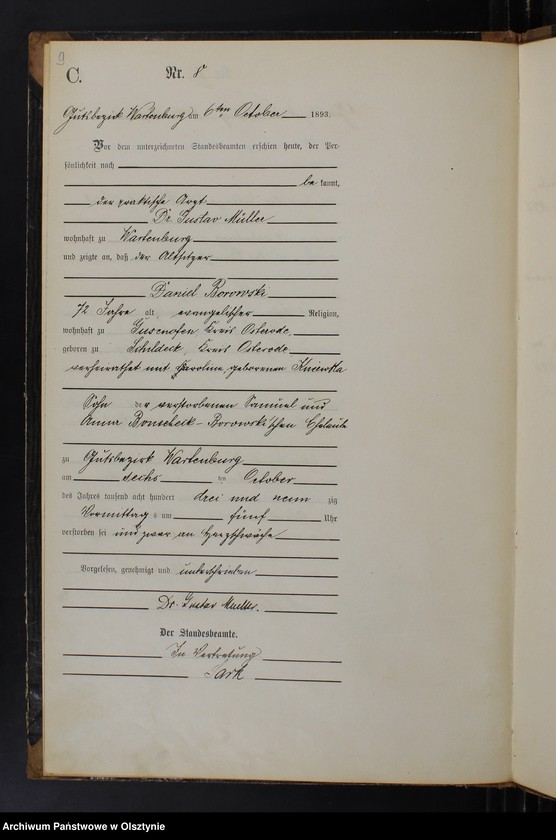 9
C.
Nr. 8
Gutsbezirk Wartenburg am 6ten October 1893.
Vor dem unterzeichneten Standesbeamten erschien heute, der Per-
sönlichkeit nach
be kannt,
der praktische Arzt
Dr. Gustav Müller
wohnhaft zu Wartenburg
und zeigte an, daß der Altsitzer
Daniel Borowski
72 Jahre alt, evangelischer Religion,
wohnhaft zu Kreis Osterode,
geboren zu Schildeck, Kreis Osterode
verheirathet mit Karoline geborenen Kniewska
Sohn der verstorbenen Samuel und
Anna Borowski'schen Eheleute
zu Gutsbezirk Wartenburg
am sechs ten October
des Jahres tausend acht hundert drei und neun zig
Vormittag s um fünf Uhr
verstorben sei und zwar an Herzschwäche
Vorgelesen, genehmigt und unterschrieben
Dr. Gustav Mueller.
Der Standesbeamte.
In Vertretung
Sark
Archiwum Państwowe w Olsztynie